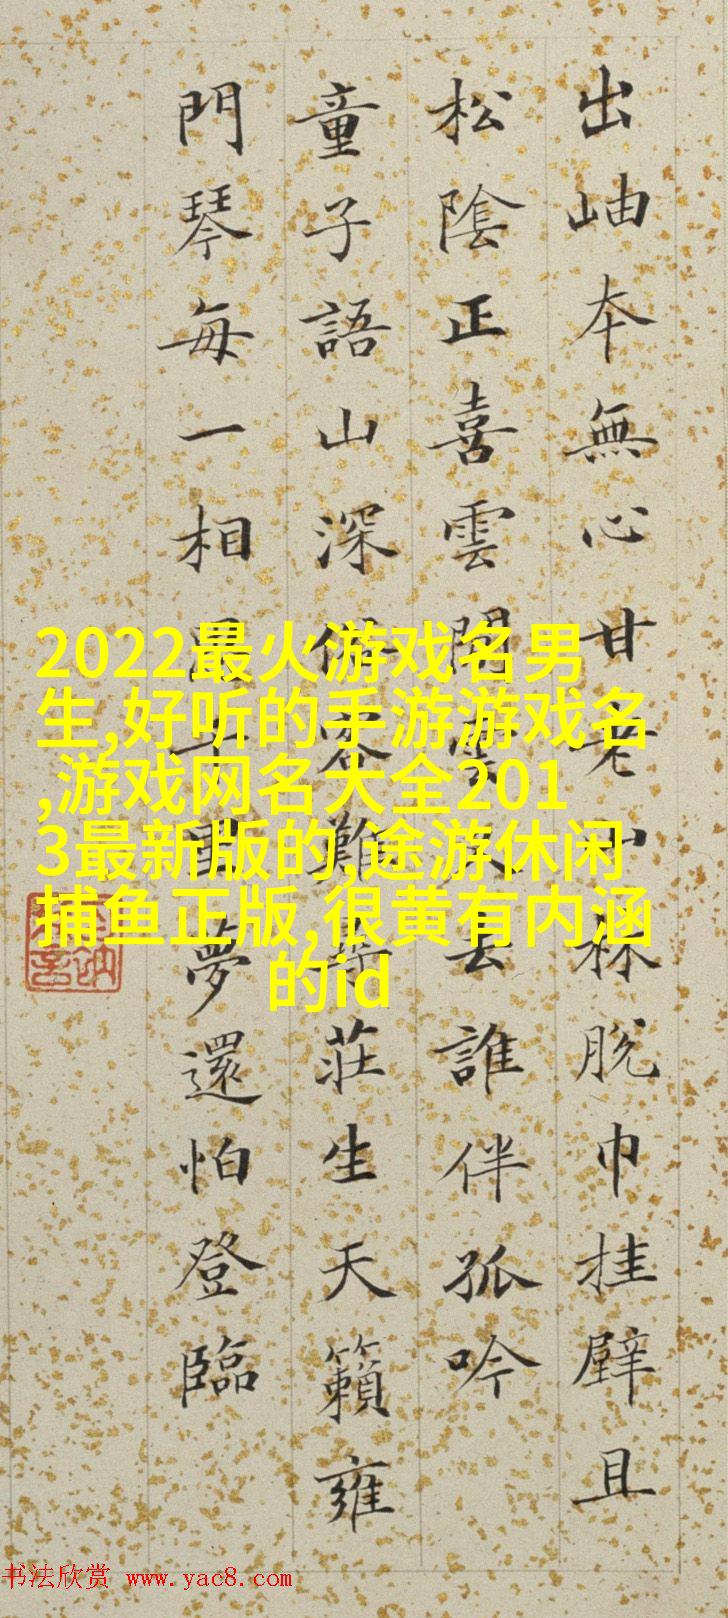 出岫本無心甘老山林脫巾挂壁且
松陰正喜雲雲去誰伴孤吟
童子語山深難尋莊生天籟雍
門琴每一相千里夢還怕登臨
2022最火游戏名男
生,好听的手游游戏名
,游戏网名大全201
3最新版的,途游休闲
捕鱼正版,很黄有内涵
的id
书法欣赏 www.yac8.com